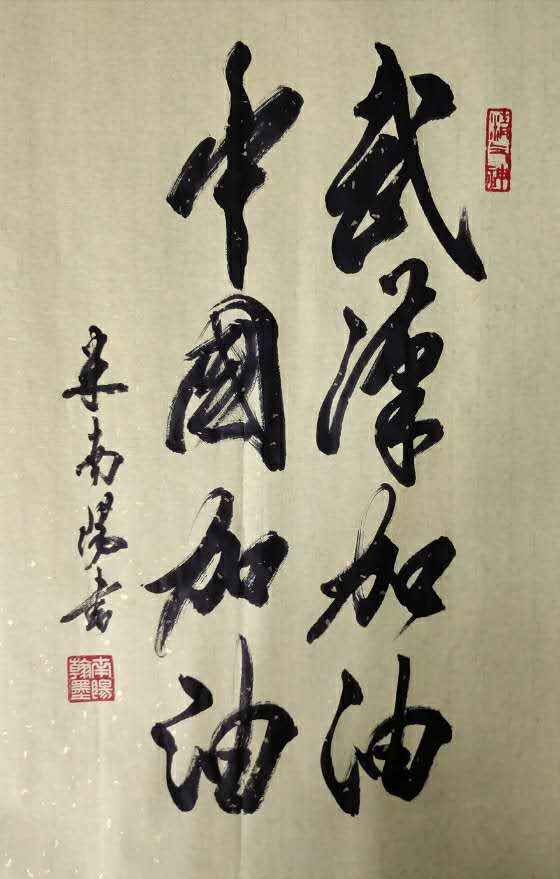 武漢加油
中國加油
米南陽书
南陽翰墨